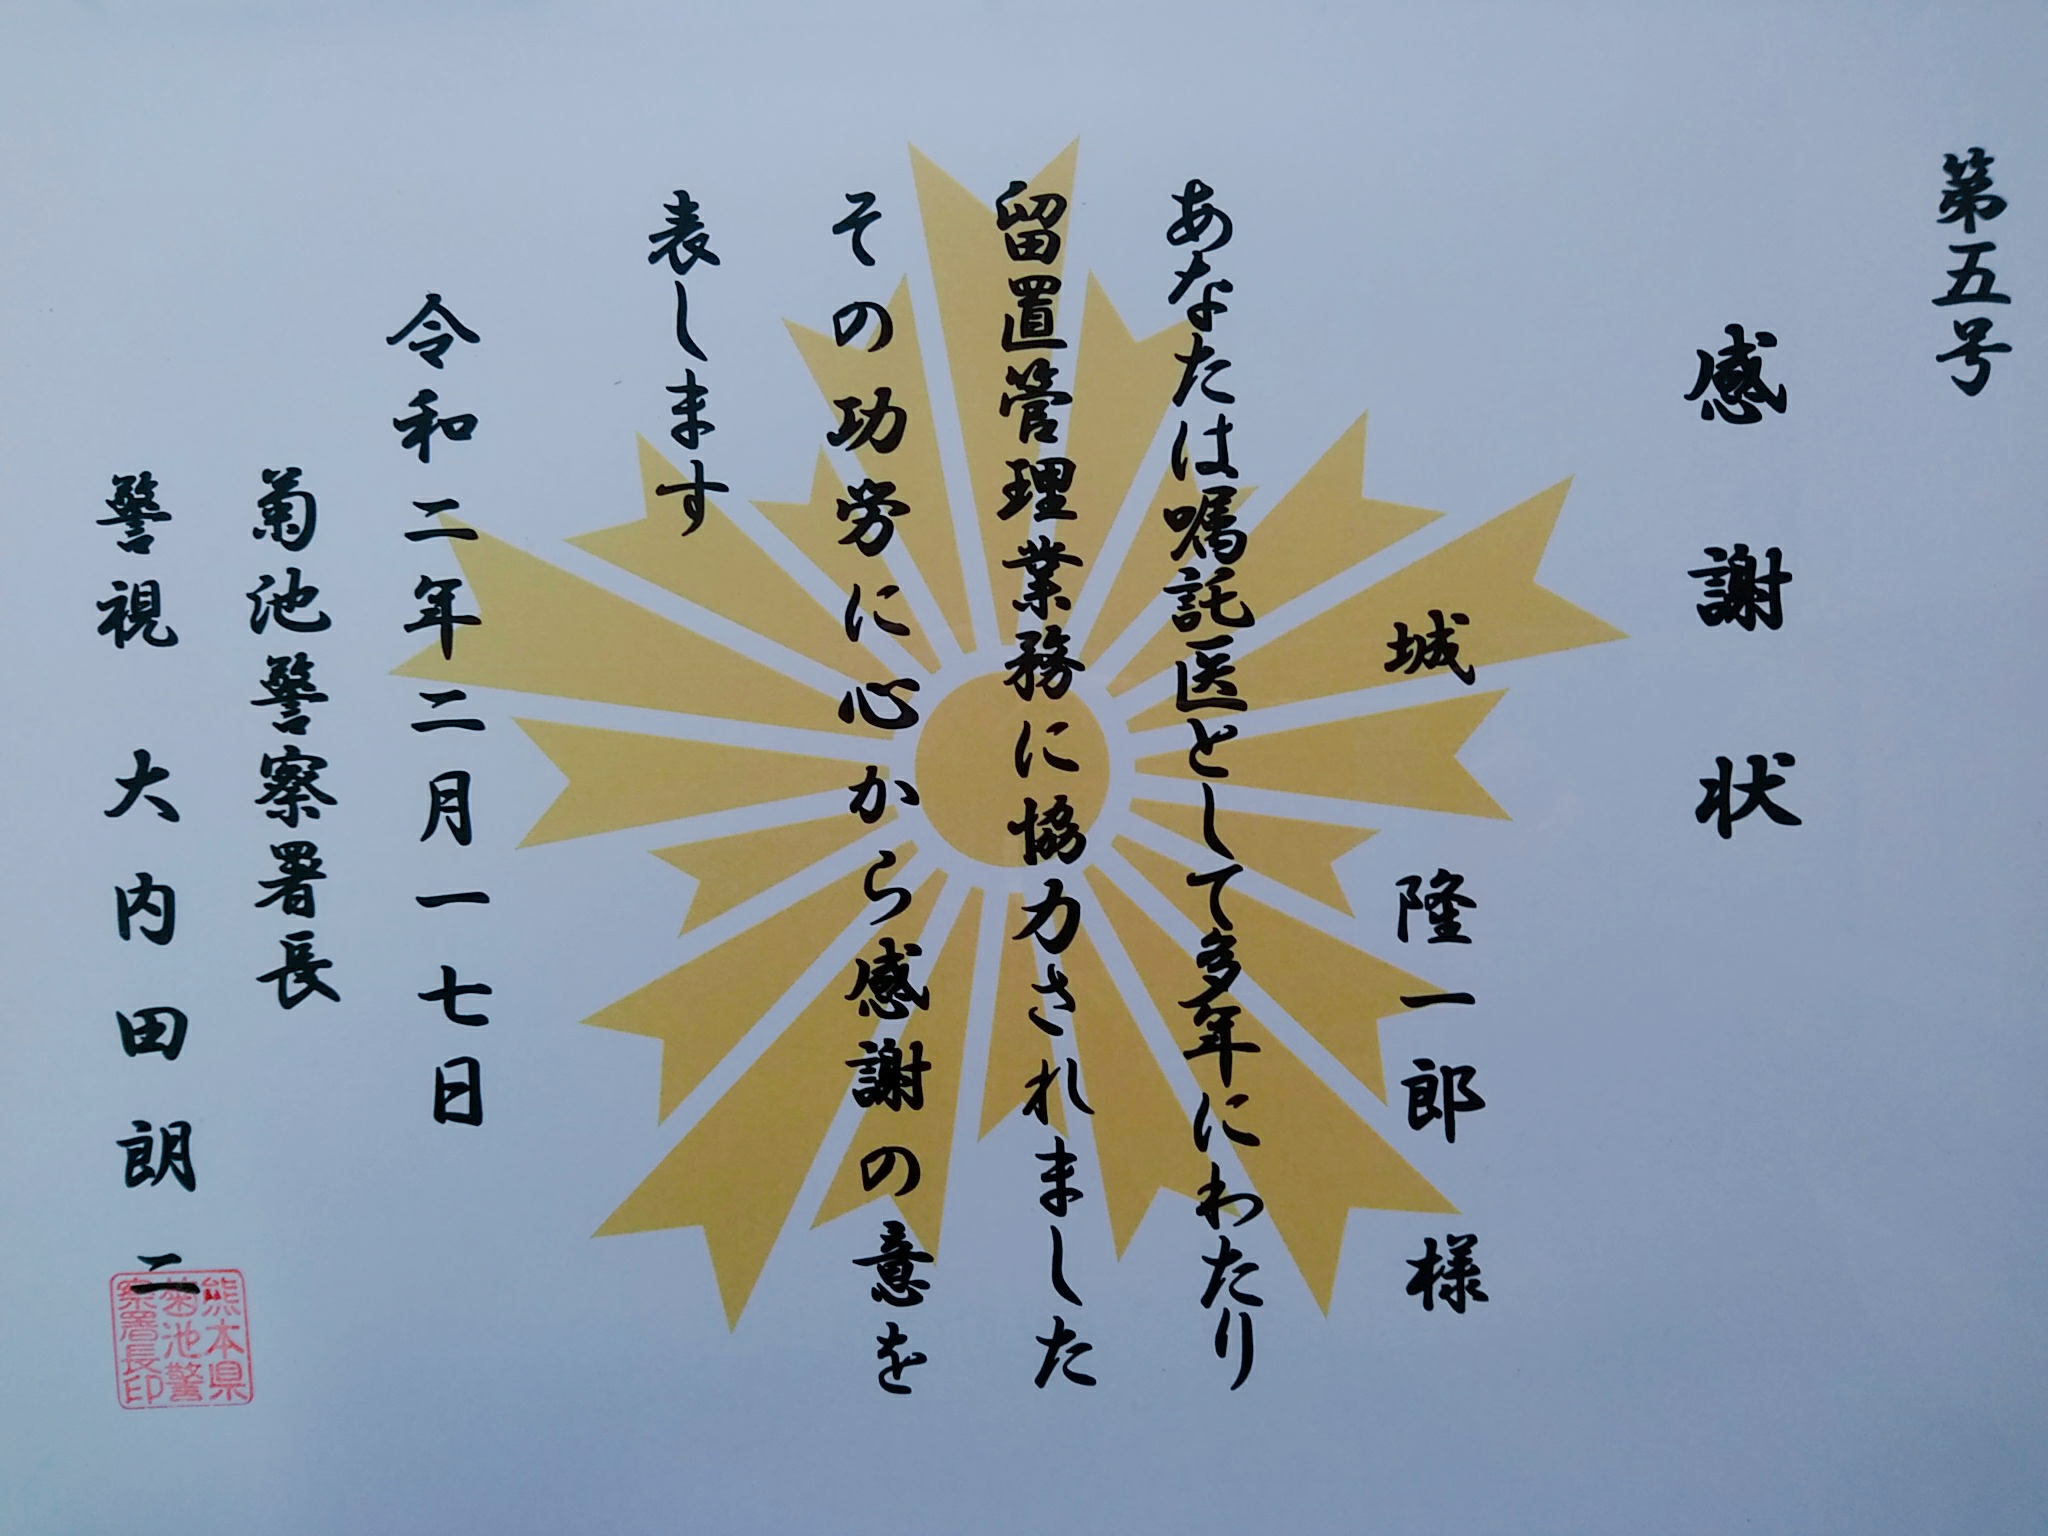 第五号
感謝状
城 隆一郎 様
あなたは嘱託医として多年にわたり
留置管理業務に協力されました
その功労に心から感謝の意を
表します
令和二年二月一七日
菊池警察署長
警視 大内田朗二
熊本県
菊池警
察署長印